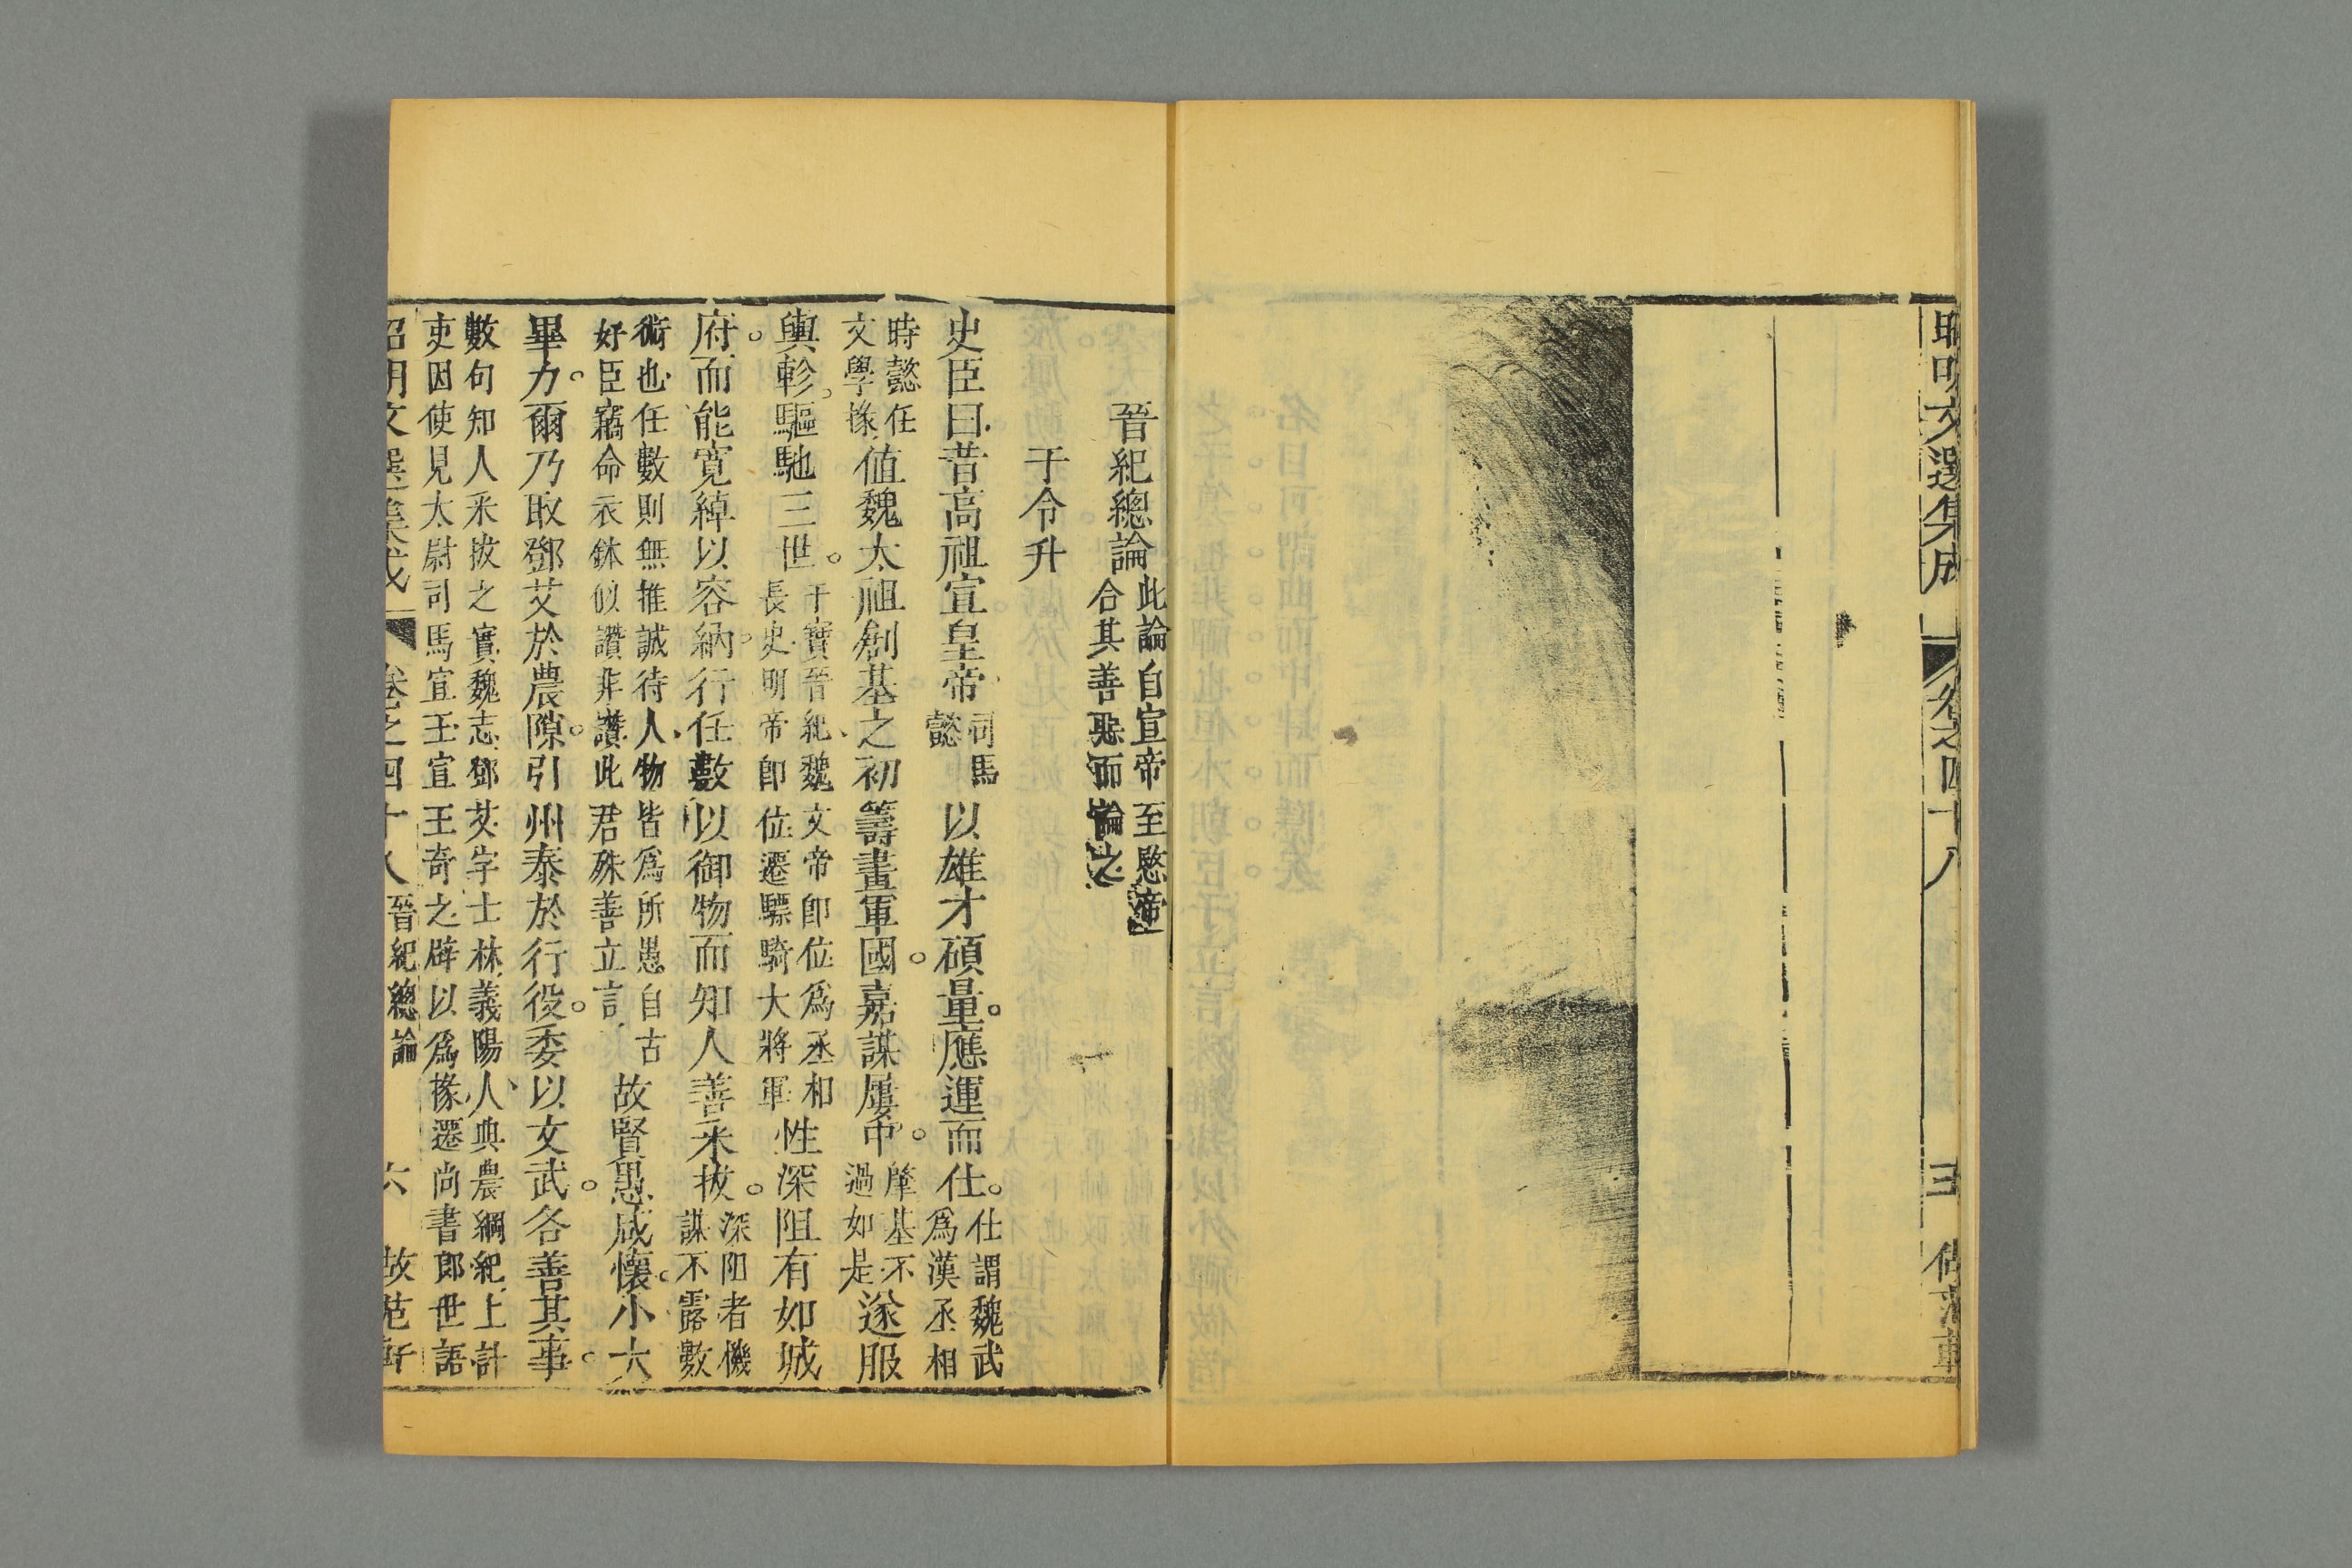 昭明文選集成 卷之四十八
晉紀總論 此論自宣帝至愍帝
合其善惡而論之
于令升
史臣曰昔高祖宣皇帝 司馬
懿 以雄才碩量應運而仕 仕謂魏武
爲漢丞相
時懿在
文學掾 値魏太祖創基之初籌畫軍國嘉謀屢中 肇基不
過如是 遂服
輿軫驅馳三世 干寶晉紀魏文帝卽位爲丞相
長史明帝卽位遷驃騎大將軍 性深阻有如城
府而能寬綽以容納行任數以御物而知人善采拔 深阻者機
謀不露數
術也任數則無推誠待人人物皆爲所愚自古
奸臣竊命衣鉢似讚非讚此君殊善立言 故賢愚咸懷小大
畢力爾乃取鄧艾於農隙引州泰於行役委以文武各善其事
數句知人采拔之實魏志鄧艾字士林義陽人典農綱紀上計
吏因使見太尉司馬宣王宣王奇之辟以爲掾遷尙書郞世語
昭明文選集成 卷之四十八 晉紀總論 六